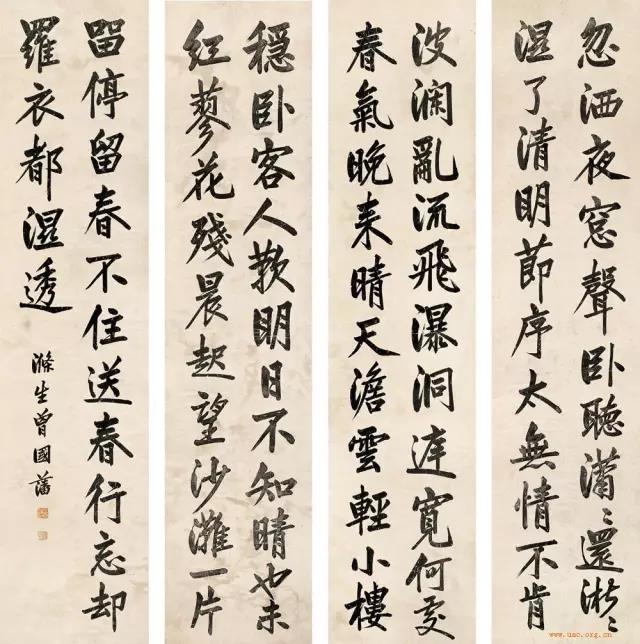 忽洒夜窓聲卧聽瀟〻還淅〻
湿了清明節序太無情不肯
波瀾亂流飛瀑洞庭寬何處
春氣晚来晴天澹雲輕小樓
穩卧客人歎明日不知晴也未
紅蓼花殘晨起望沙灘一片
留停留春不住送春行忘却
羅衣都湿透
滌生曾國藩
www.uac.org.cn